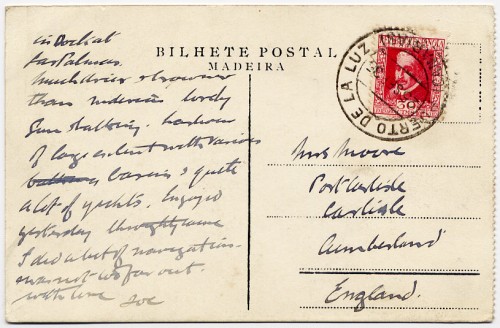 BILHETE POSTAL
MADEIRA
in Dock at
Las Palmas.
much drier & browner
than madeira lovely
Sun
harbour
of large extent with various
basins & quite
a lot of yachts. Enjoyed
yesterday
I did a lot of navigation.
was not too far out.
with love Joe
PUERTO DE LA LUZ
30
Mrs Moore
Port Carlisle
Carlisle
Cumberland
England.